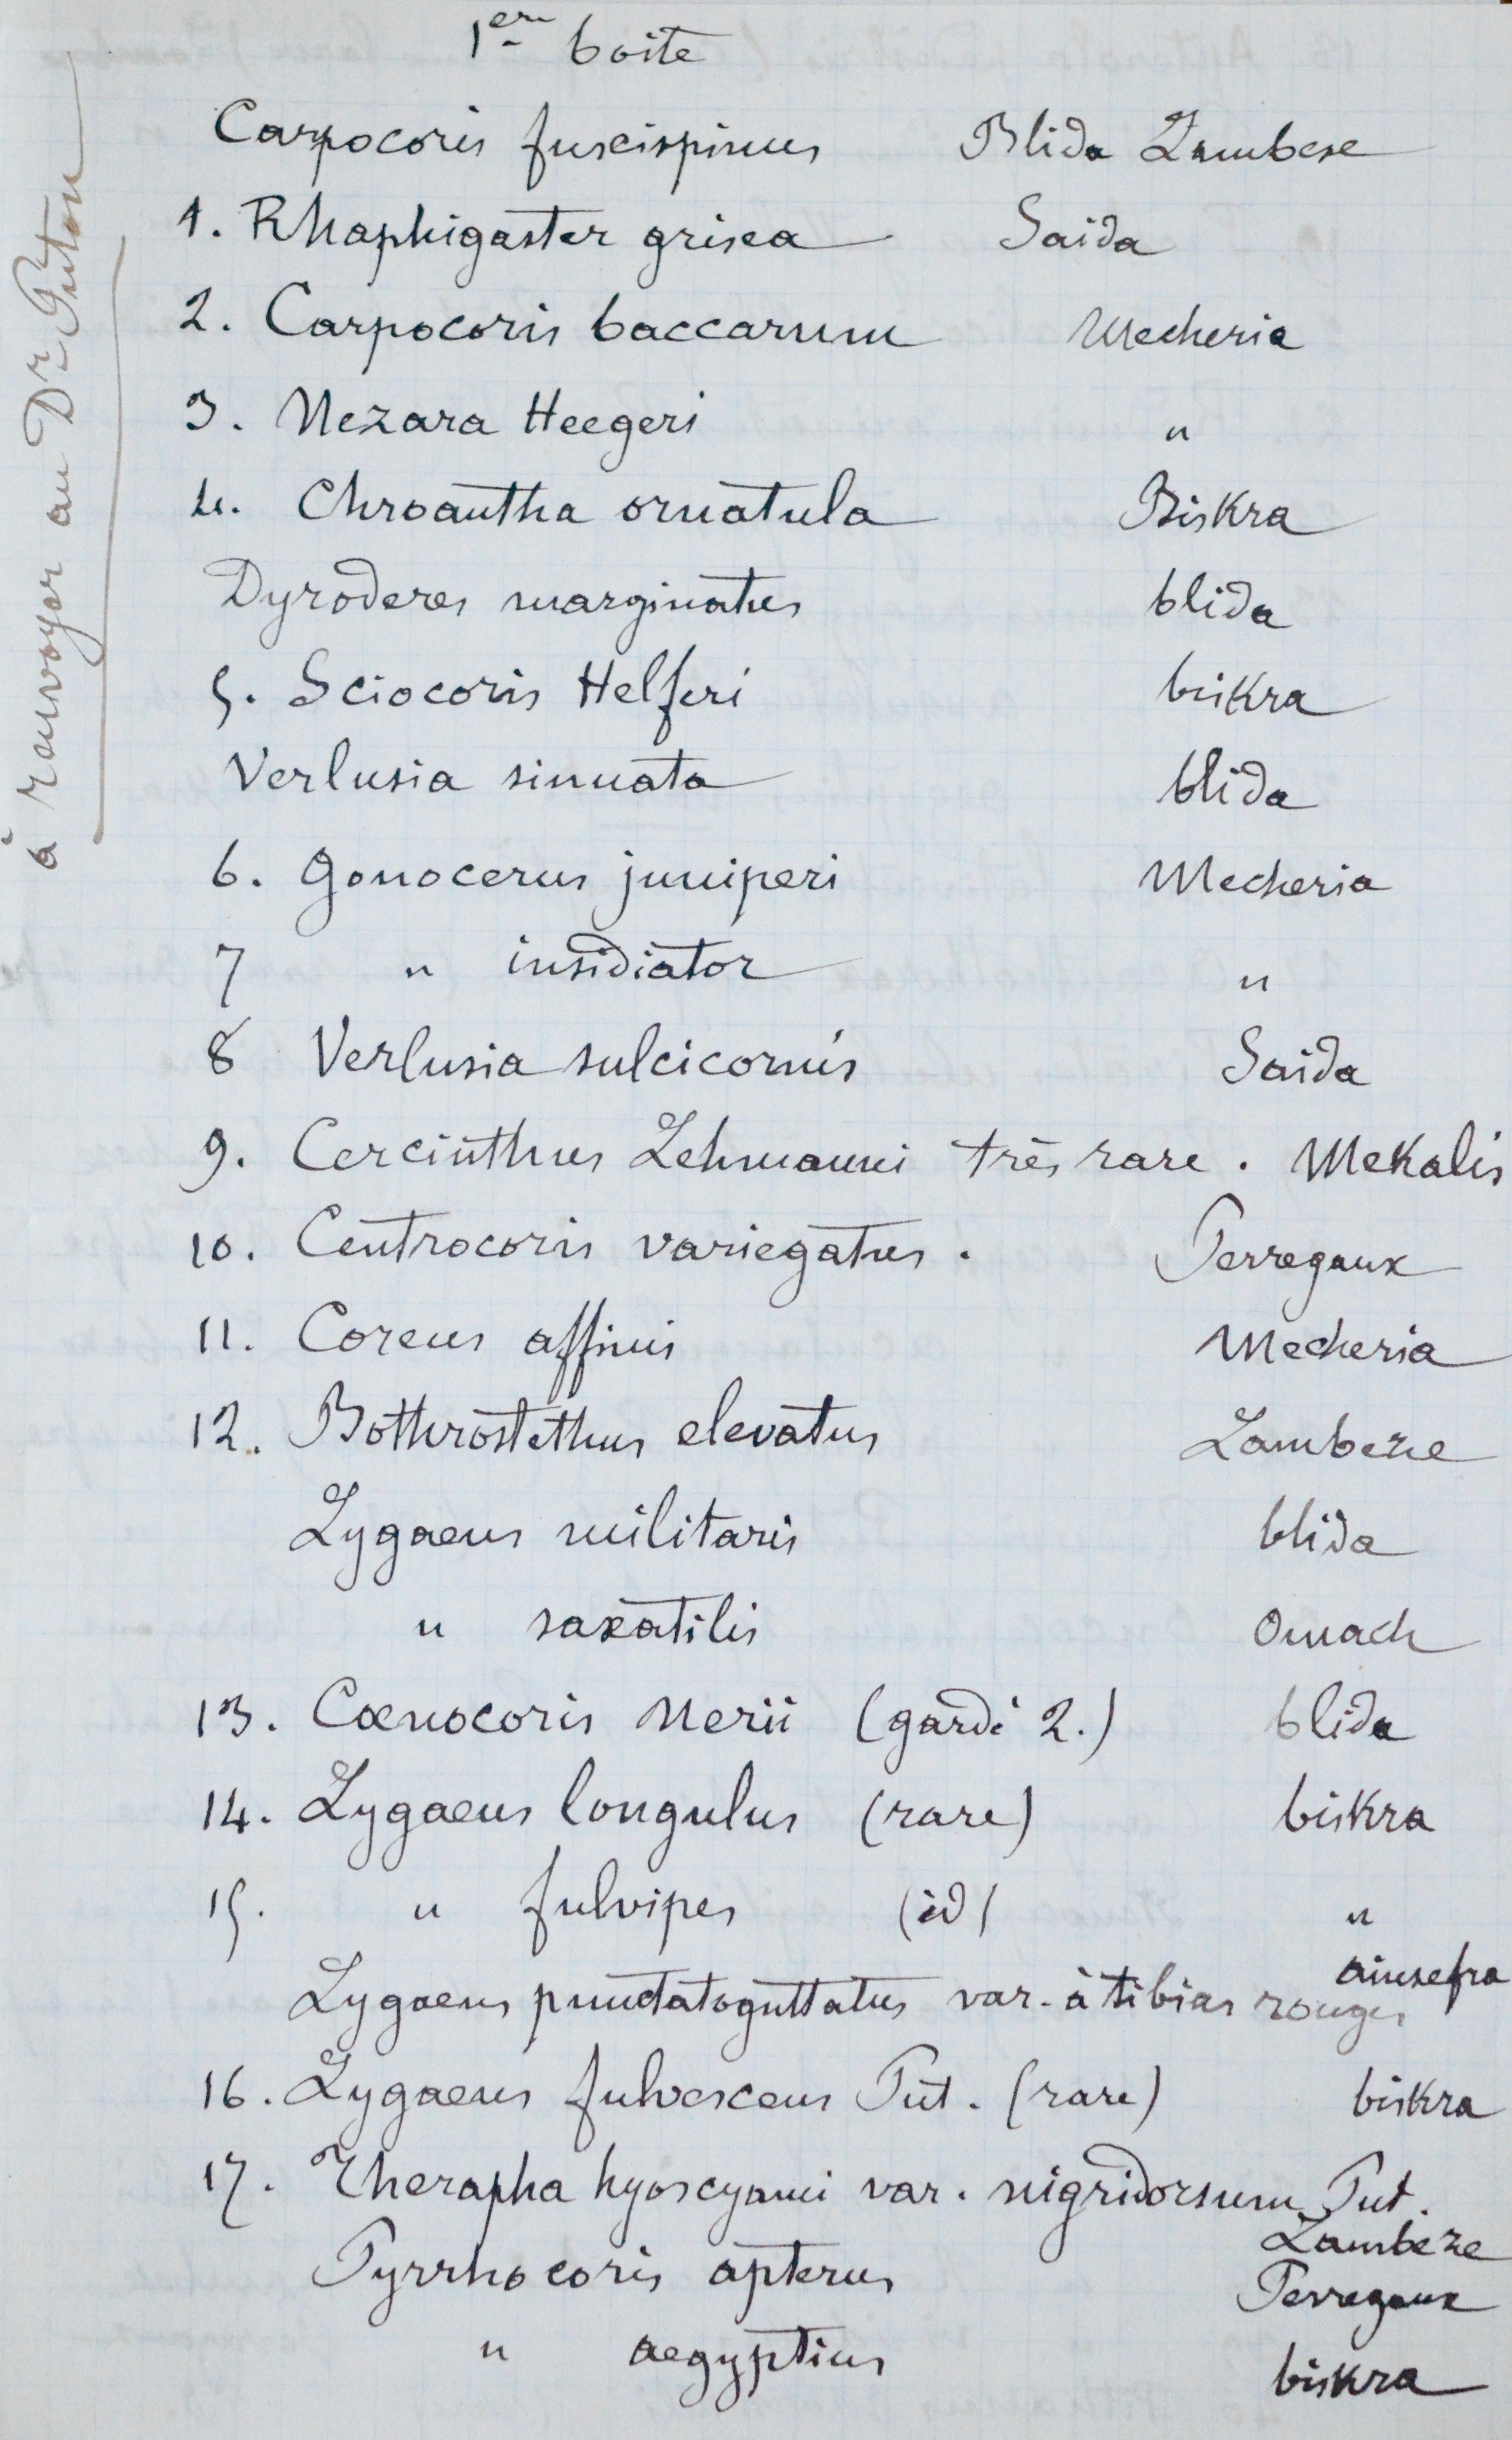 1ere boite
Carpocoris fuscispinus Blida Lambese
1. Rhaphigaster grisea Saida
2. Carpocoris baccarum Mecheria
3. Nezara Heegeri "
4. Chroantha ornatula Biskra
Dyroderes marginatus blida
5. Sciocoris Helferi biskra
Verlusia sinuata blida
6. Gonocerus juniperi Mecheria
7 " insidiator "
8 Verlusia sulcicornis Saida
9. Cercinthus Lehmanni très rare. Mekalis
10. Centrocoris variegatus. Perregaux
11. Coreus affinis Mecheria
12. Bothrostethus elevatus Lambeze
Lygaeus militaris blida
" saxatilis Oumach
13. Cœnocoris Nerii (gardé 2.) blida
14. Lygaeus longulus (rare) biskra
15. " fulvipes (id) "
Lygaeus punctatoguttatus var. à tibias rouges ainsefra
16. Lygaeus fulvescens Put. (rare) biskra
17. Therapha hyoscyami var. nigridorsum Put.
Lambeze
Pyrrhocoris apterus Perregaux
" aegyptius biskra
à renvoyer au Dr Puton